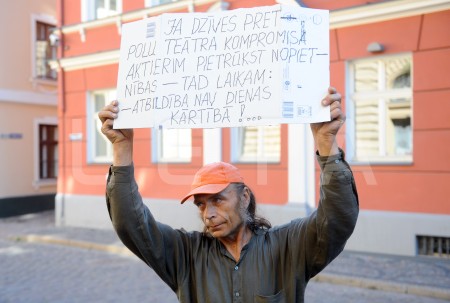 JA DZĪVES PRET-
POLU TEĀTRA KOMPROMISĀ
AKTIERIM PIETRŪKST NOPIET-
NĪBAS — TAD LAIKAM:
— ATBILDĪBA NAV DIENAS
KĀRTĪBĀ!...